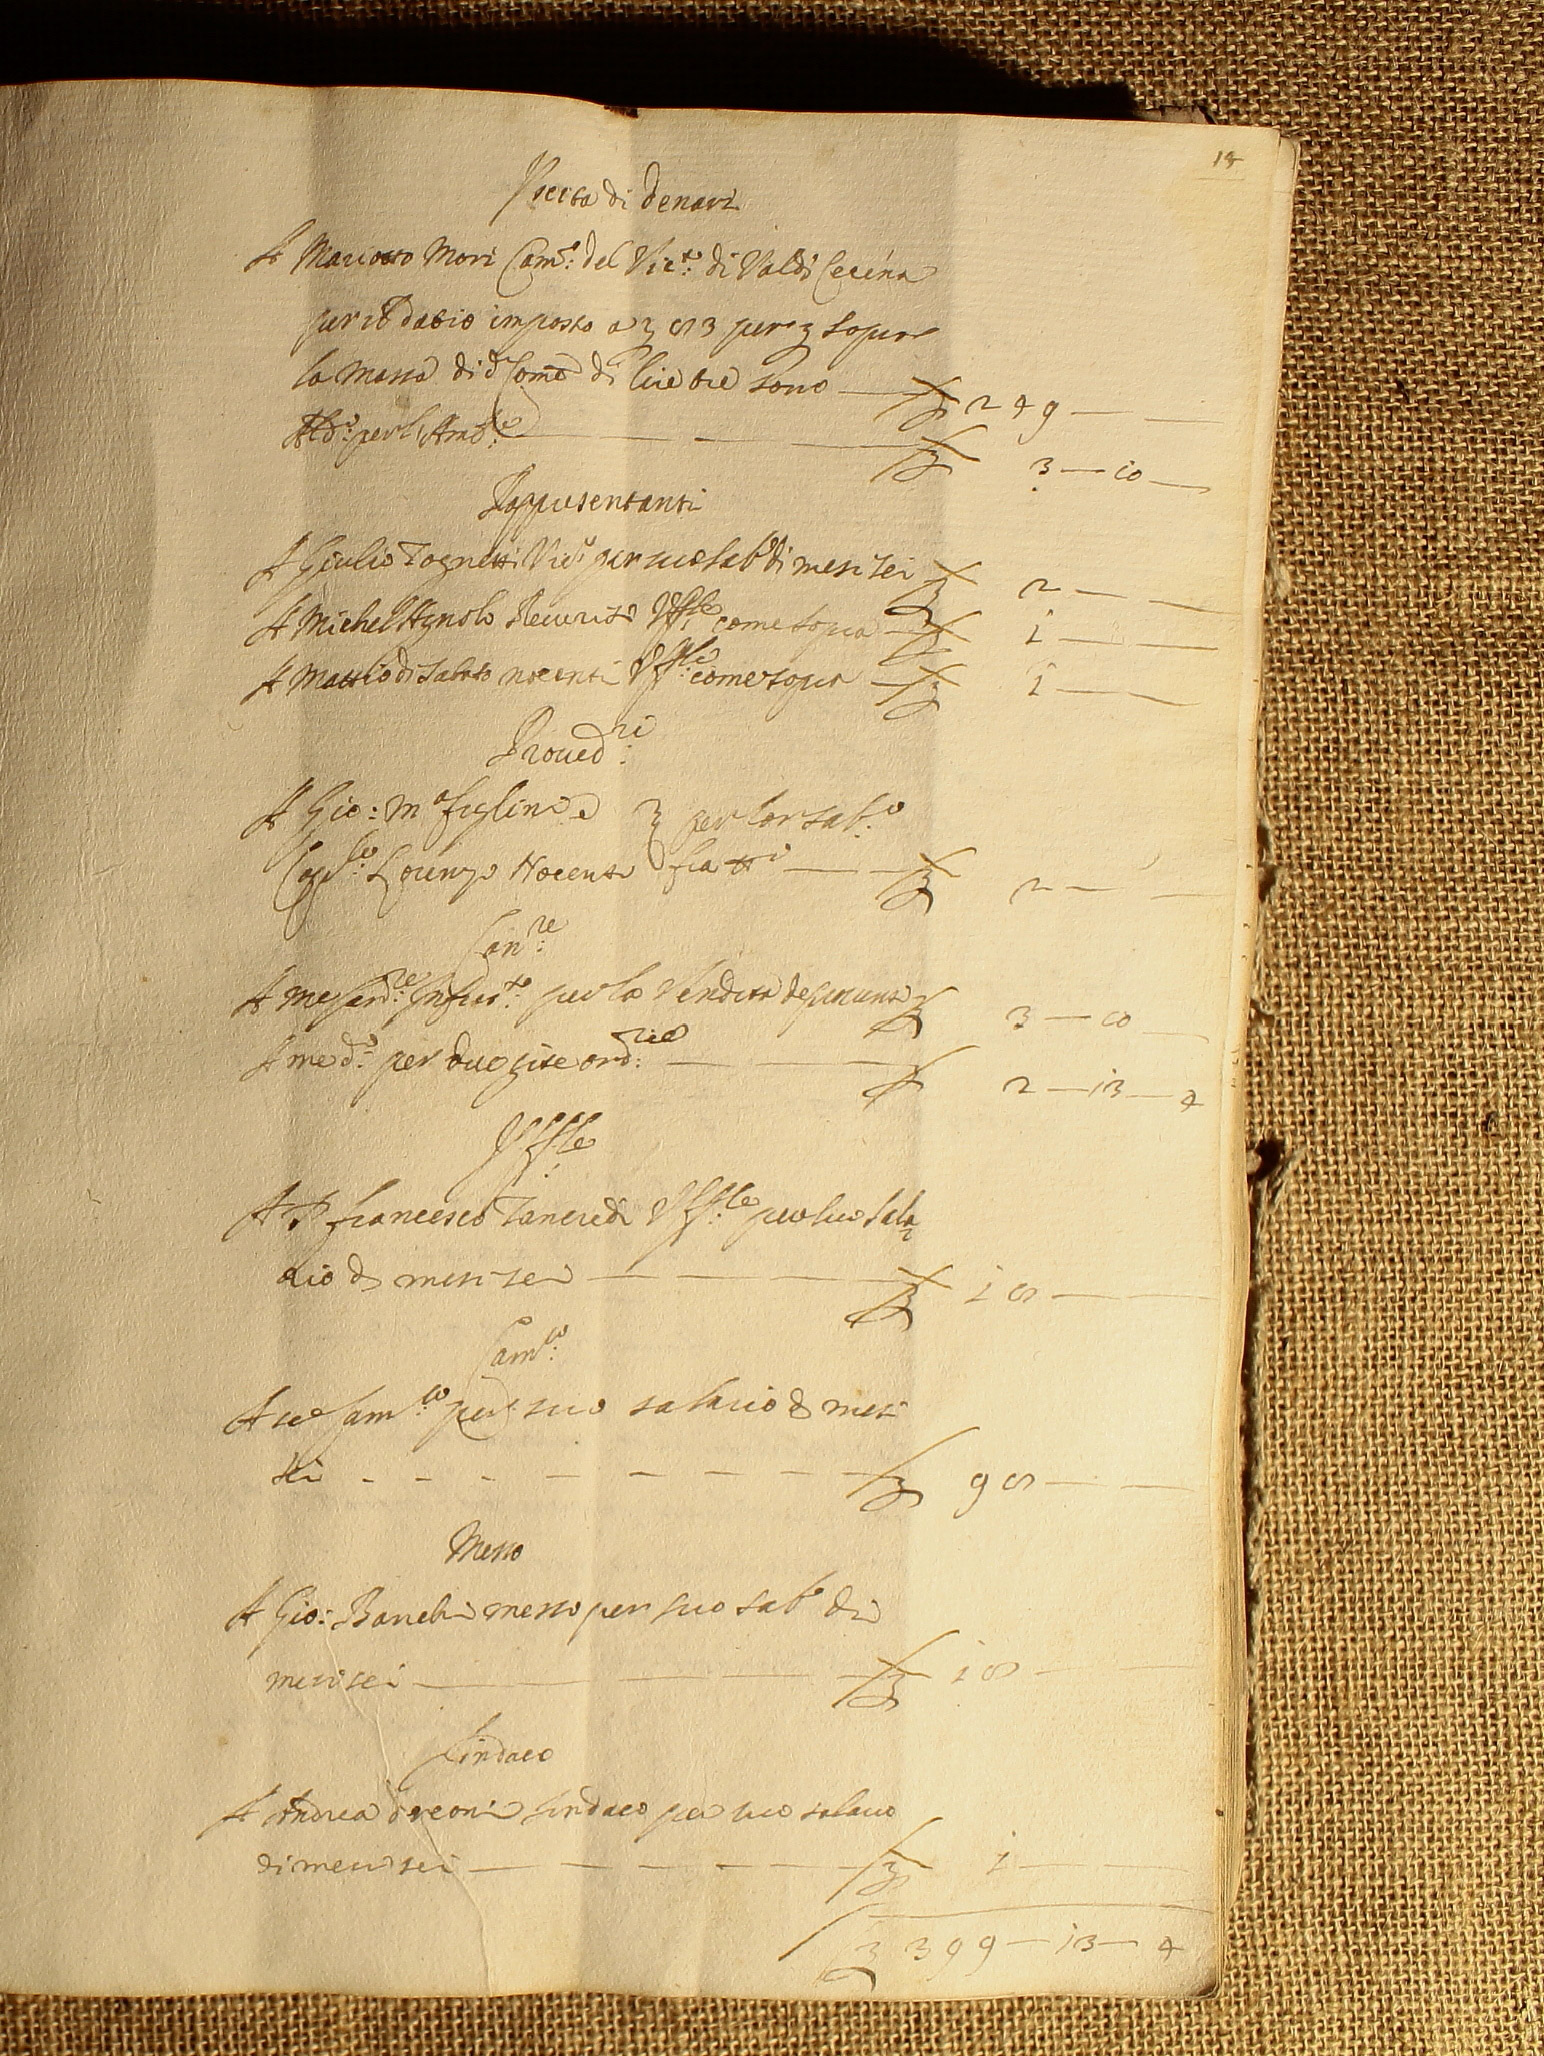 15
Uscita di denari
A Mariotto Mori Cam:ro del Vic:to di Val di Cecina
per il dazio imposto a 8 3 per sopra
la massa di d:o Com:e di lire tre sono 249
Al d:o per l'Amb:e 3 — 10
Rappresentanti
A Giulio Tognetti Vic:o per suo sal:o di mesi sei 2
A Michel Agnolo Uff:le come sopra 1
A Matteo di Sabato nocenti Uff:le come sopra 1
Proued:ri
A Gio: M:a figlini e per lor sal:o
Cap:le Lorenzo Nocenti fra tt:i 2
Can:re
A me Can:re Infras:to per la Vendita de 3 — 10
A me d:o per due gite ord:rie 2 — 13 — 4
Uff:le
A P francesco Tancredi Uff:le per suo sala
rio di mesi sei 18
Cam:o
A suo Cam:o per suo salario di mesi
sei 98
Messo
A Gio: Banchi messo per suo sal:o di
mesi sei 18
Sindaco
A Andrea sindaco per suo salario
di mesi sei 1
399 — 13 — 4